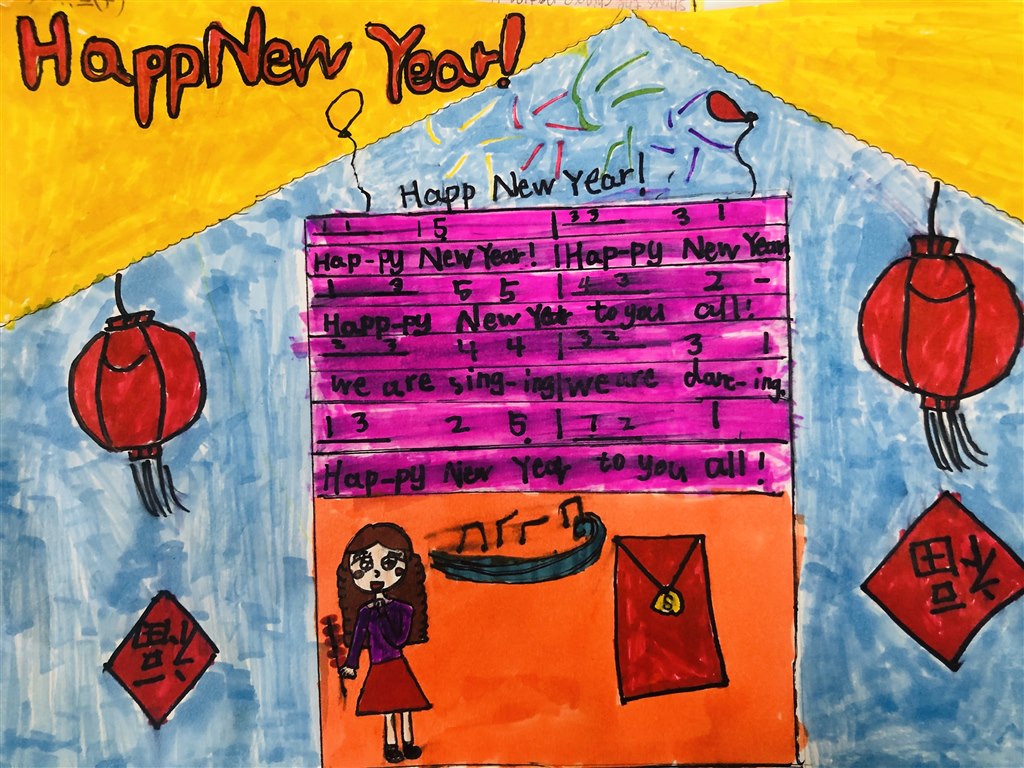 HappNew Year!
Happ New Year!
1 1 1 5 | 3 3 3 1
Hap-py New Year! | Hap-py New Year
1 3 5 5 | 4 3 2 -
Happ-py New Year to you all!
3 3 4 4 | 3 2 3 1
We are sing-ing | we are danc-ing.
1 3 2 5 | 7 2 1
Hap-py New Year to you all!
福
福